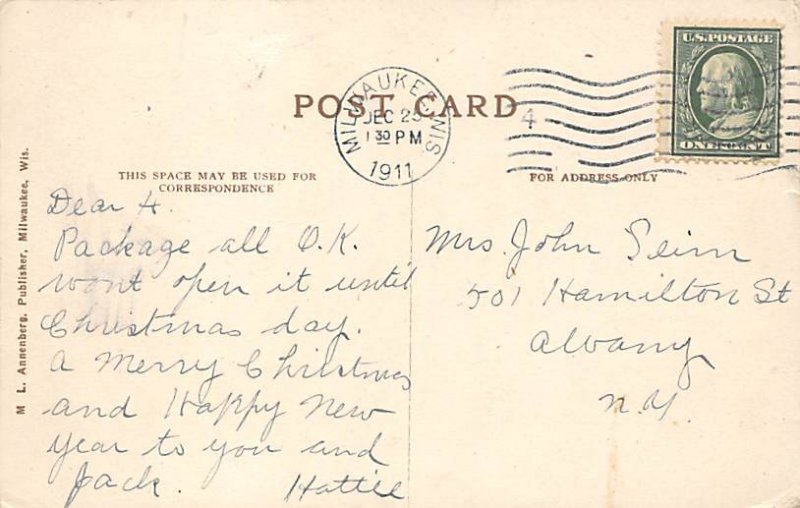 POST CARD
MILWAUKEE, WIS.
DEC 23
1 30 PM
1911
4
U.S. POSTAGE
ONE CENT
THIS SPACE MAY BE USED FOR
CORRESPONDENCE
FOR ADDRESS ONLY
M. L. Annenberg, Publisher, Milwaukee, Wis.
Dear H.
Package all O.K.
wont open it until
Christmas day.
A Merry Christmas
and Happy New
Year to you and
Jack. Hattie
Mrs. John Seim
501 Hamilton St
Albany
N.Y.